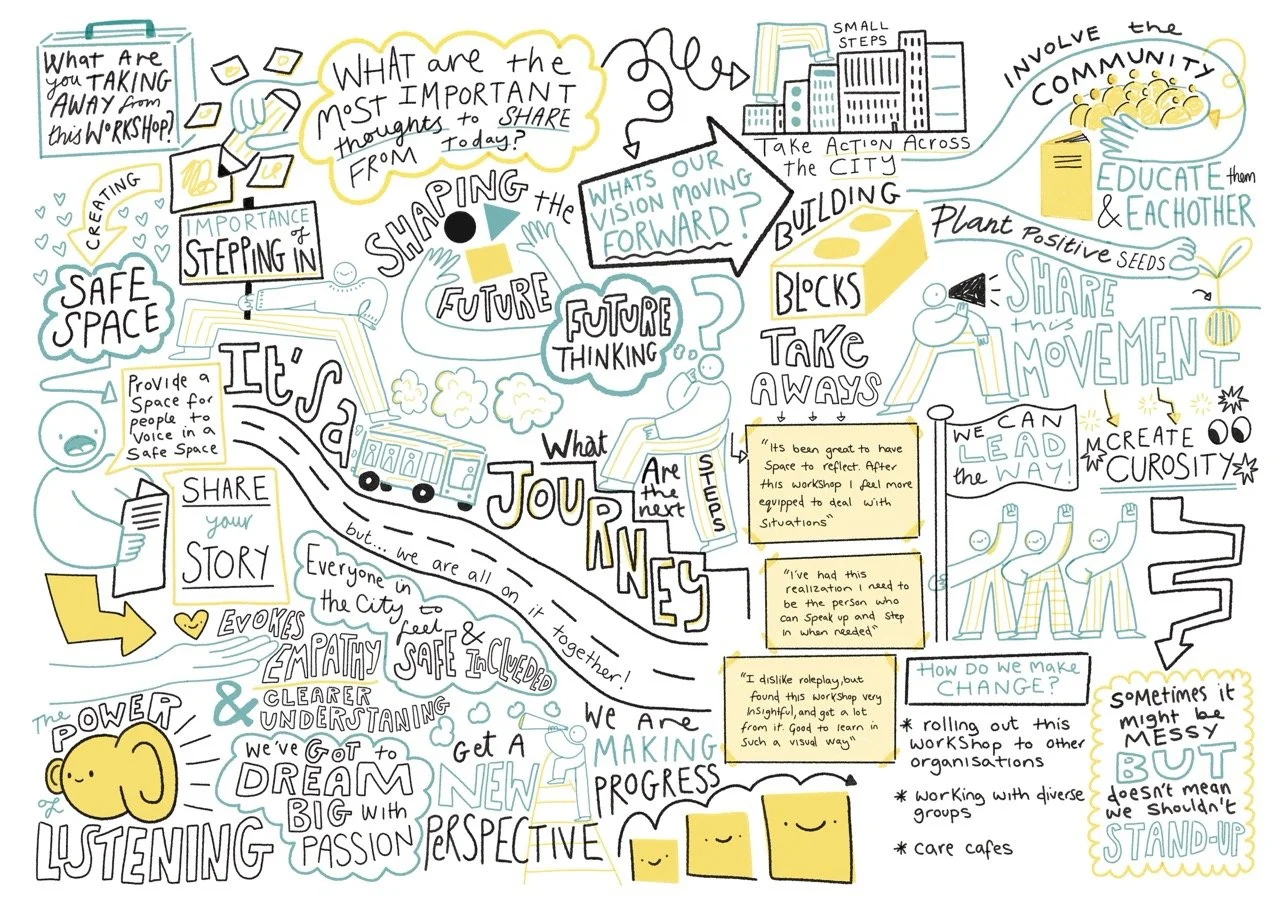 What Are
you TAKING
AWAY from
this WORKSHOP?
WHAT are the
MOST IMPORTANT
thoughts to SHARE
FROM today?
SMALL
STEPS
Take ACTION ACROSS
the CITY
INVOLVE the
COMMUNITY
EDUCATE them
& EACHOTHER
CREATING
SAFE
SPACE
IMPORTANCE
of
STEPPING IN
SHAPING THE
FUTURE
WHATS OUR
VISION MOVING
FORWARD?
FUTURE
THINKING
?
BUILDING
BLOCKS
Plant Positive SEEDS
SHARE
this
MOVEMENT
TAKE
AWAYS
"Its been great to have
Space to reflect. After
this workshop I feel more
equipped to deal with
Situations"
"I've had this
realization I need to
be the person who
can Speak up and Step
in when needed"
"I dislike roleplay, but
found this workshop very
Insightful, and got a lot
from it. Good to learn in
Such a visual way"
WE CAN
LEAD
the WAY!
CREATE
CUROSITY
Provide a
Space for
people to
Voice in a
Safe Space
SHARE
your
STORY
It's a
JOURNEY
but... we are all on it together!
What
Are
the
next
STEPS
Everyone in
the City to
feel &
SAFE InCLUEDED
EVOKES
EMPATHY
& CLEARER
UNDERSTANING
The
POWER
of
LISTENING
We've GOT to
DREAM
BIG with
PASSION
Get A
NEW
PERSPECTIVE
We Are
MAKING
PROGRESS
HOW DO WE MAKE
CHANGE?
* rolling out this
workshop to other
organisations
* working with diverse
groups
* care cafes
SOMETIMES it
might be
MESSY
BUT
doesn't mean
we Shouldn't
STAND-UP